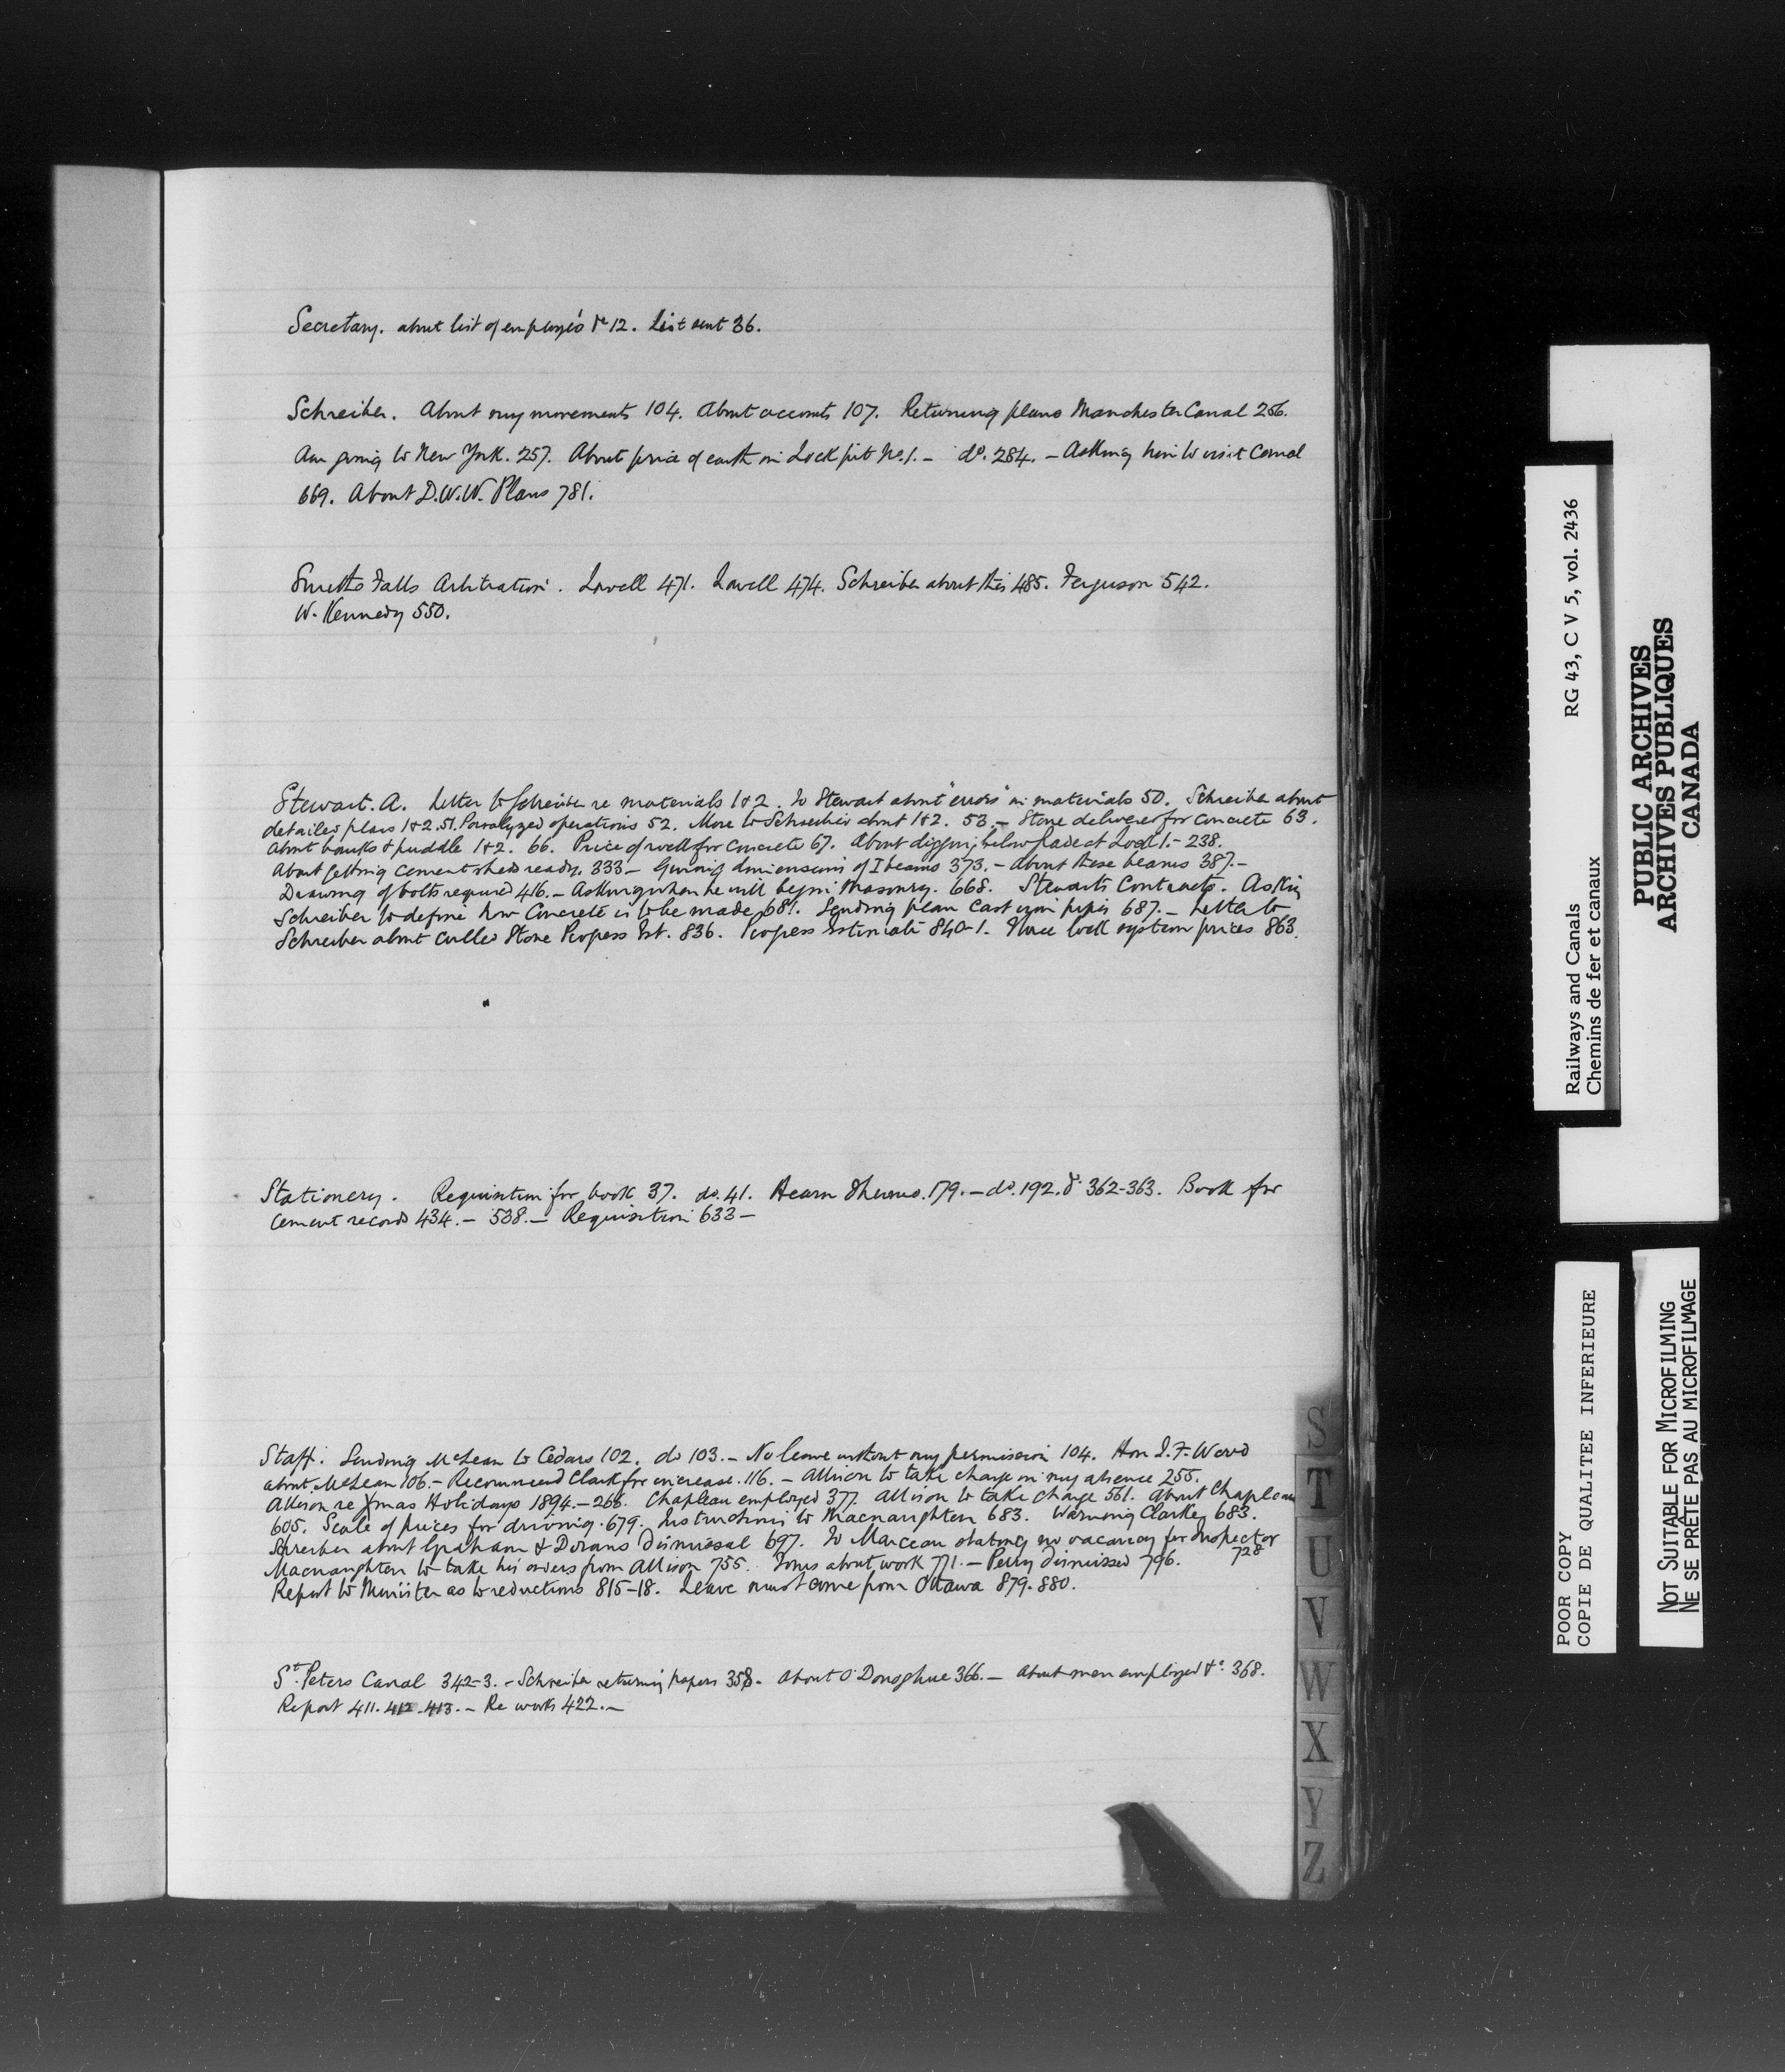 Secretary. about list of employés &c 12. List sent 36.
Schreiber. About my movements 104. About accounts 107. Returning plans Manchester Canal 256.
Am going to New York. 257. About price of earth in Lock pit No. 1. - do. 284. - Asking him to visit Canal
669. About D.W.W. Plans 781.
Smiths Falls Arbitration. Lowell 471. Lowell 474. Schreiber about this 485. Ferguson 542.
W. Kennedy 550.
Stewart. A. Letter to Schreiber re materials 1&2. To Stewart about "errors" in materials 50. Schreiber about
detailed plans 1&2. 51. Paralyzed operations 52. More to Schreiber about 1&2. 53. - Stone delivered for concrete 63.
About banks & puddle 1&2. 66. Price of rock for concrete 67. About digging below grade at Lock 1. - 238.
About getting cement shed ready. 333 - Giving dimensions of I beams 373. - About these beams 387. -
Drawing of bolts required 416. - Asking when he will begin Masonry. 668. Stewarts Contracts. Asking
Schreiber to define how Concrete is to be made 681. Sending plan Cast iron pipes 687. - Letter to
Schreiber about culled Stone Progress Est. 836. Progress estimate 840-1. Three lock system prices 863.
Stationery. Requisition for book 37. do. 41. Hearn 179. - do. 192. & 362-363. Book for
cement records 434. - 538. - Requisition 633 -
Staff. Sending McLean to Cedars 102. do 103. - No leave without my permission 104. Hon J. F. Wood
about McLean 106. - Recommend Clark for increase. 116. - Allison to take charge in my absence 255.
Allison re Xmas Holidays 1894. - 266. Chapleau employed 377. Allison to take charge 561. About Chapleau
605. Scale of prices for driving. 679. Instructions to Macnaughten 683. Warning Clarkey 683.
Schreiber about Graham & Dorans dismissal 697. To Marceau stating no vacancy for Inspector
728
Macnaughten to take his orders from Allison 755. about work 771. - Perry dismissed 796.
Report to Minister as to reductions 815-18. Leave must come from Ottawa 879. 880.
St. Peters Canal 342-3. - Schreiber returning papers 358. About O'Donoghue 366. - About men employed &c. 368.
Report 411. 412. 413. - Re work 422. -
S
T
U
V
W
X
Y
Z
Railways and Canals RG 43, C V 5, vol. 2436
Chemins de fer et canaux
PUBLIC ARCHIVES
ARCHIVES PUBLIQUES
CANADA
POOR COPY
COPIE DE QUALITEE INFERIEURE
NOT SUITABLE FOR MICROFILMING
NE SE PRÊTE PAS AU MICROFILMAGE